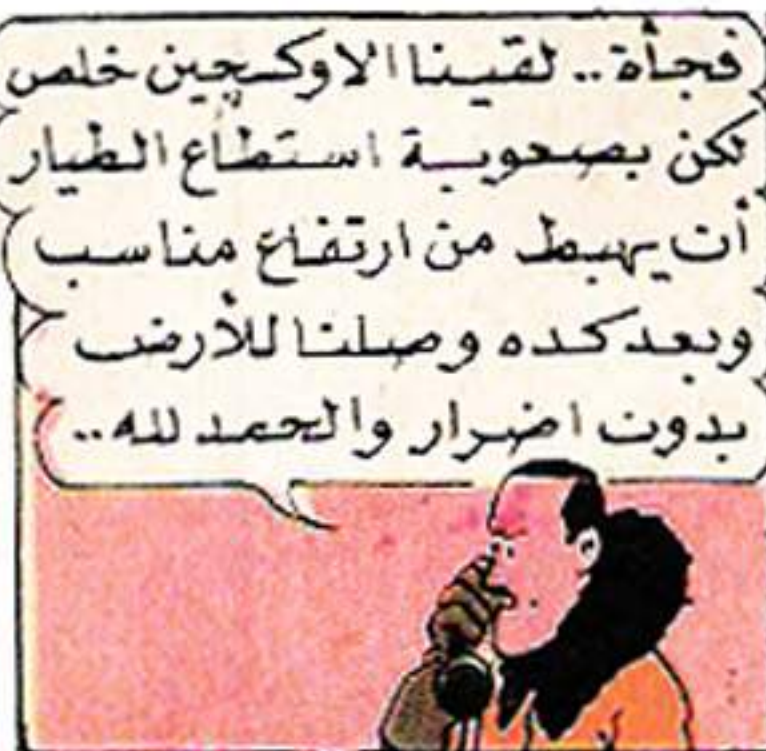 فجأة.. لقينا الاوكسجين خلص
لكن بصعوبة استطاع الطيار
أن يهبط من ارتفاع مناسب
وبعد كده وصلنا للأرض
بدون اضرار والحمد لله..